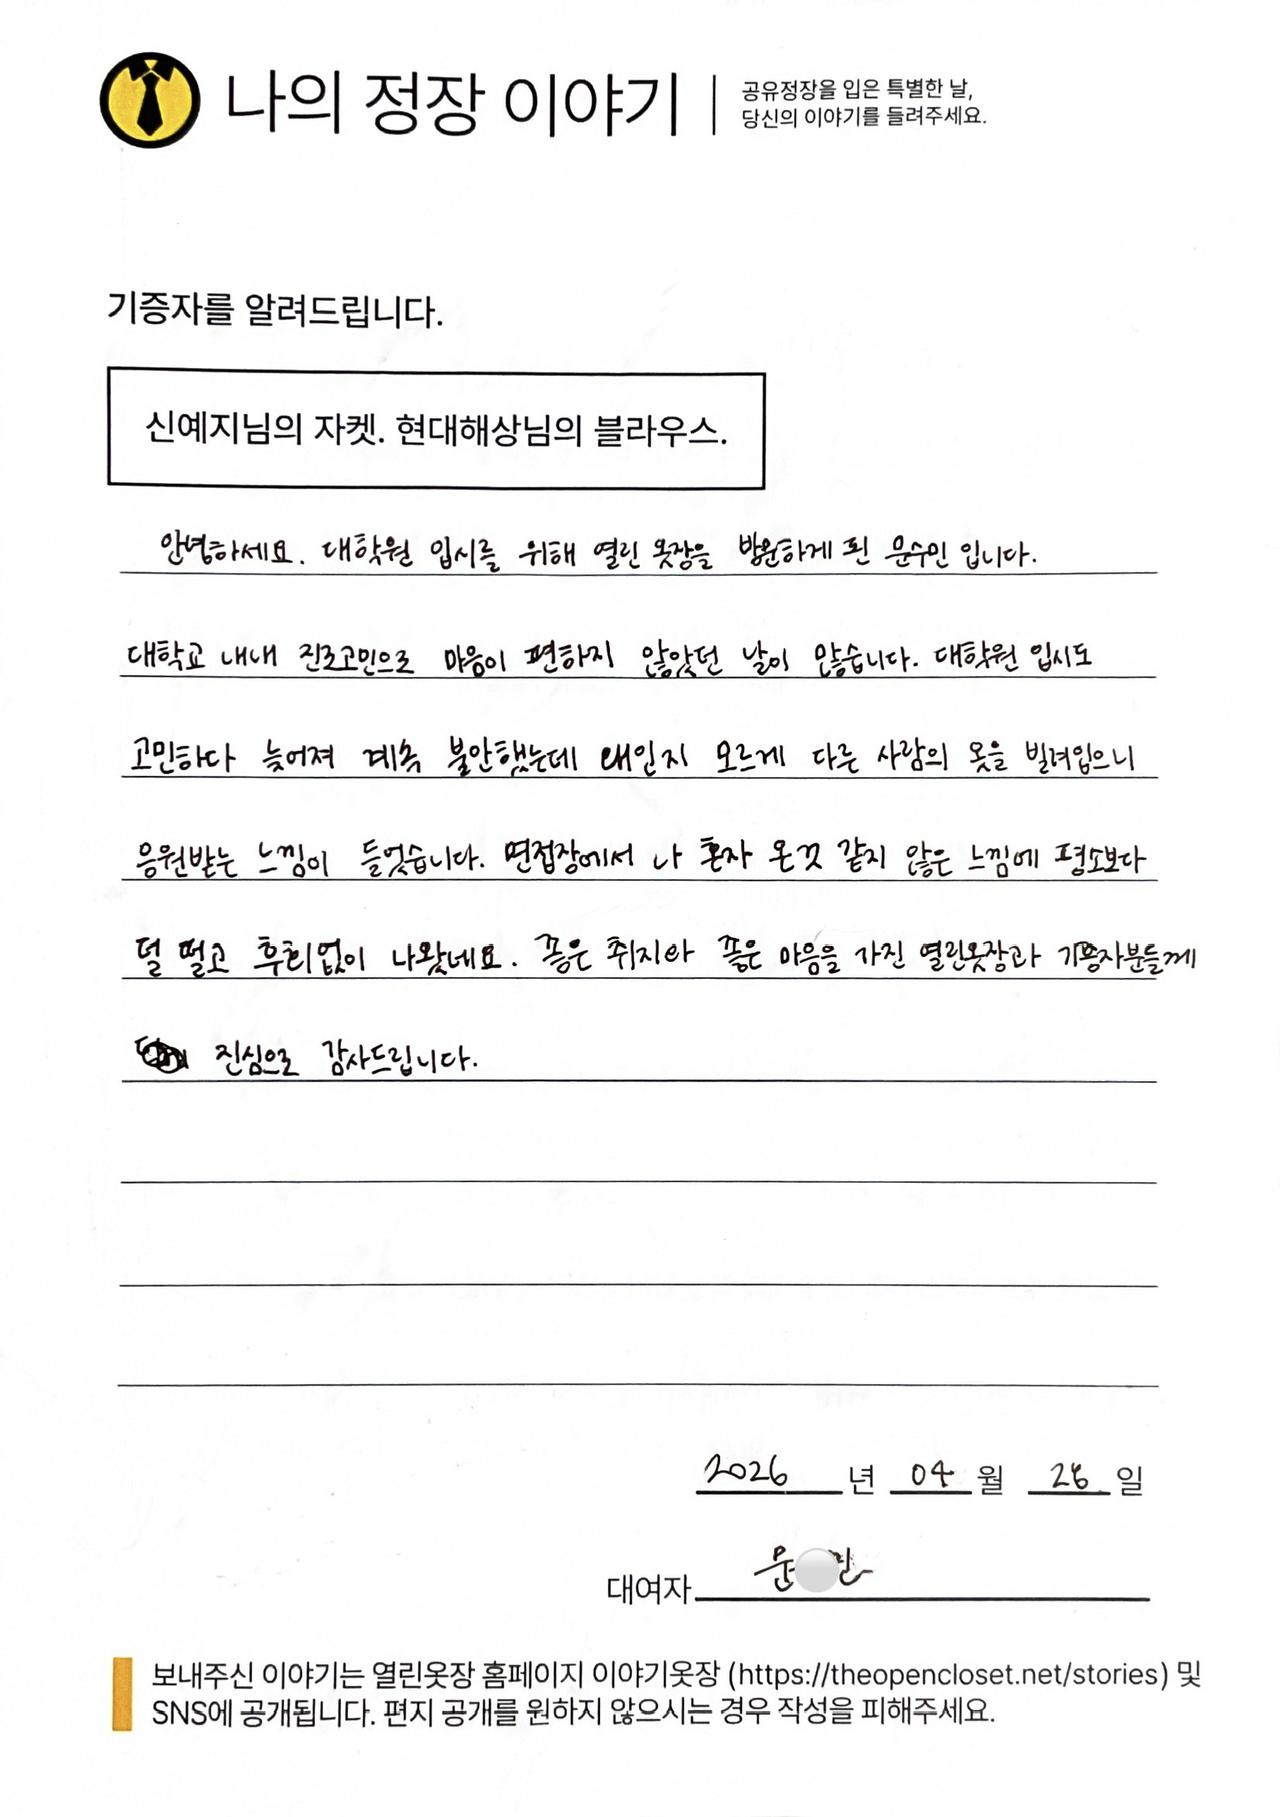 나의 정장 이야기
공유정장을 입은 특별한 날,
당신의 이야기를 들려주세요.
기증자를 알려드립니다.
신예지님의 자켓. 현대해상님의 블라우스.
안녕하세요. 대학원 입시를 위해 열린 옷장을 방문하게 된 문수민 입니다.
대학교 내내 진로고민으로 마음이 편하지 않았던 날이 많습니다. 대학원 입시도
고민하다 늦어져 계속 불안했는데 왜인지 모르게 다른 사람의 옷을 빌려입으니
응원받는 느낌이 들었습니다. 면접장에서 나 혼자 온것 같지 않은 느낌에 평소보다
덜 떨고 후회없이 나왔네요. 좋은 취지와 좋은 마음을 가진 열린옷장과 기증자분들께
진심으로 감사드립니다.
2026 년 04 월 일
대여자 문 민
보내주신 이야기는 열린옷장 홈페이지 이야기옷장 (https://theopencloset.net/stories) 및
SNS에 공개됩니다. 편지 공개를 원하지 않으시는 경우 작성을 피해주세요.